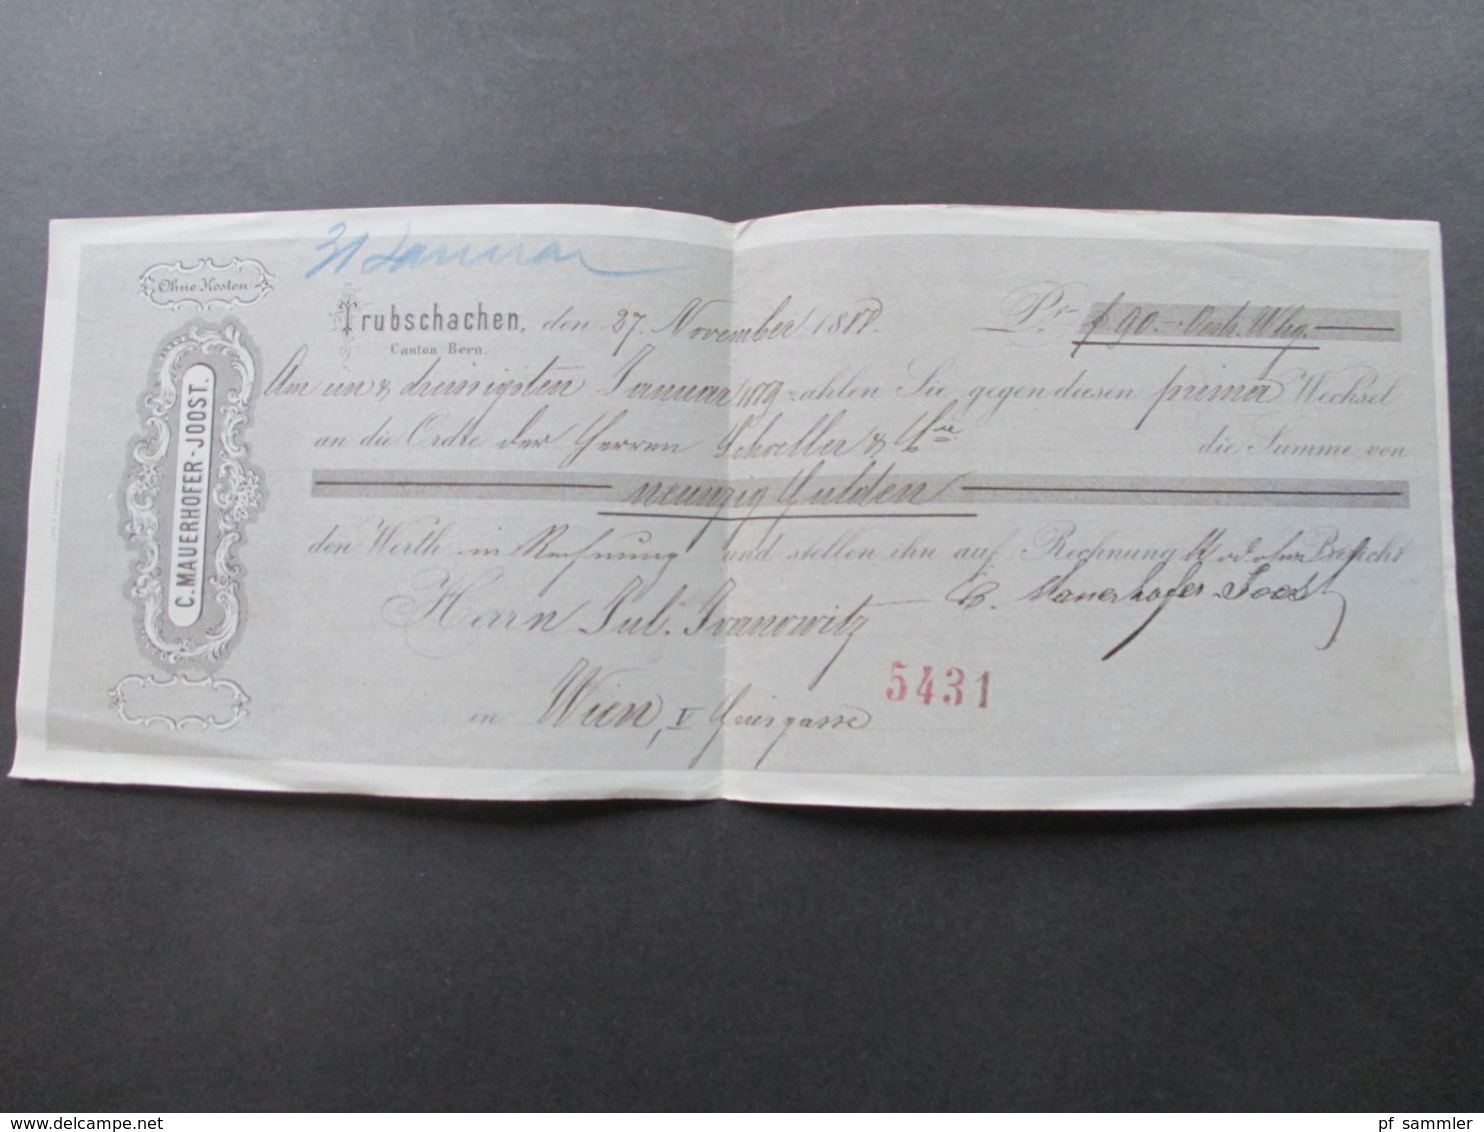 31 Januar
Ohne Kosten
Trubschachen, den 27. November 18
Canton Bern.
Pr. f 90.- Oestr. Whg.
Am un & dreissigsten Januar 1879 zahlen Sie gegen diesen prima Wechsel
an die Ordre der Herren Schoeller & Cie die Summe von
neunzig Gulden
den Werth in Rechnung und stellen ihn auf Rechnung lt. od. ohne Bericht
C. Mauerhofer-Joost
Herrn Jul. Ivanowitz
in Wien, V Griesgasse
5431
C. MAUERHOFER-JOOST.
delcampe.net
pf_sammler